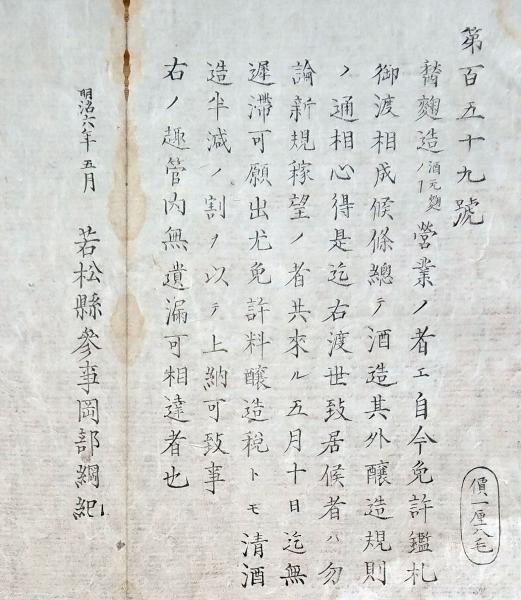 第百五十九號
鬻麴造ノ酒元麹ノ1營業ノ者エ自今免許鑑札
御渡相成候條總テ酒造其外醸造規則
ノ通相心得是迄右渡世致居候者ハ勿
論新規稼望ノ者共來ル五月十日迄無
遲滯可願出尤免許料醸造税トモ清酒
造半減ノ割ヲ以テ上納可致事
右ノ趣管内無遺漏可相達者也
明治六年五月 若松縣參事岡部綱紀
價一厘八毛